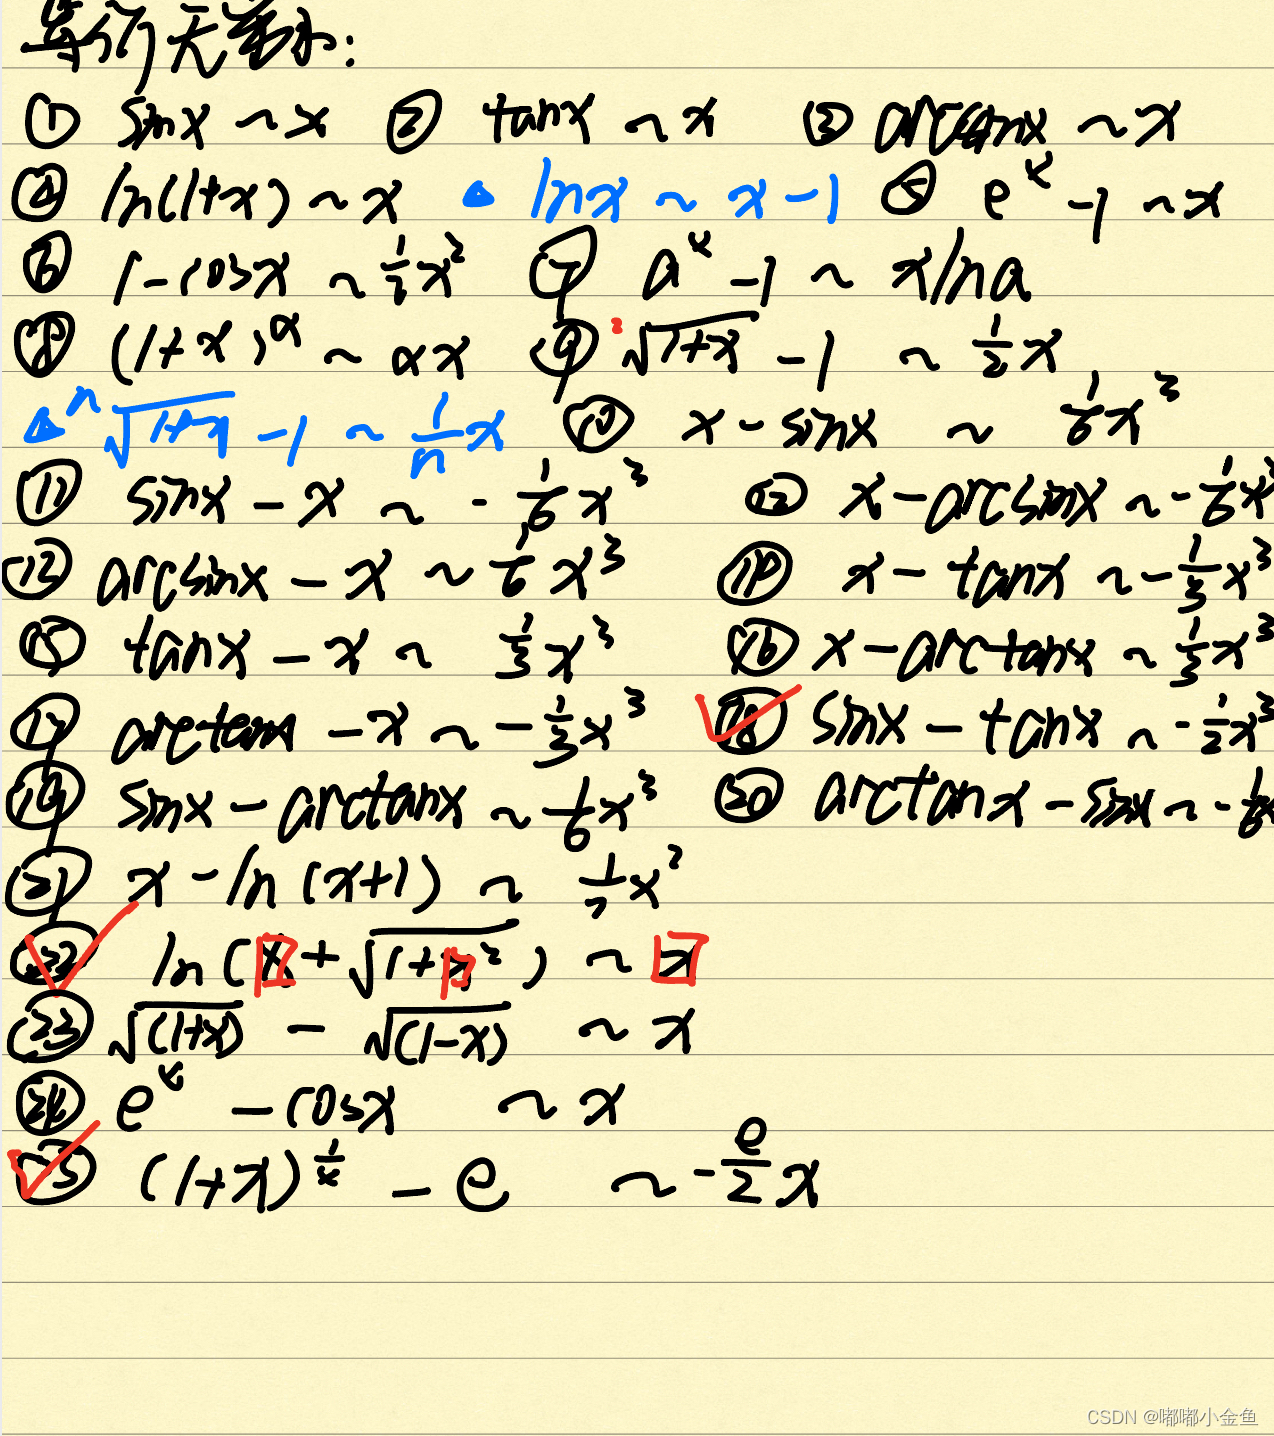 等价无穷小:
① sinx ~ x ② tanx ~ x ③ arctanx ~ x
④ ln(1+x) ~ x △ lnx ~ x-1 ⑤ e^x -1 ~ x
⑥ 1-cosx ~ 1/2 x² ⑦ a^x -1 ~ xlna
⑧ (1+x)^α ~ αx ⑨ ²√(1+x) -1 ~ 1/2 x
△ ⁿ√(1+x) -1 ~ 1/n x ⑩ x-sinx ~ 1/6 x³
⑪ sinx - x ~ -1/6 x³ ⑫ x-arcsinx ~ -1/6 x³
⑬ arcsinx - x ~ 1/6 x³ ⑭ x-tanx ~ -1/3 x³
⑮ tanx - x ~ 1/3 x³ ⑯ x-arctanx ~ 1/3 x³
⑰ arctanx - x ~ -1/3 x³ ⑱ sinx - tanx ~ -1/2 x³
⑲ sinx - arctanx ~ 1/6 x³ ⑳ arctanx - sinx ~ -1/6 x
㉑ x - ln(x+1) ~ 1/2 x²
㉒ ln(x+√(1+x²)) ~ x
㉓ √(1+x) - √(1-x) ~ x
㉔ e^x - cosx ~ x
㉕ (1+x)^(1/x) - e ~ -e/2 x
CSDN @嘟嘟小金鱼